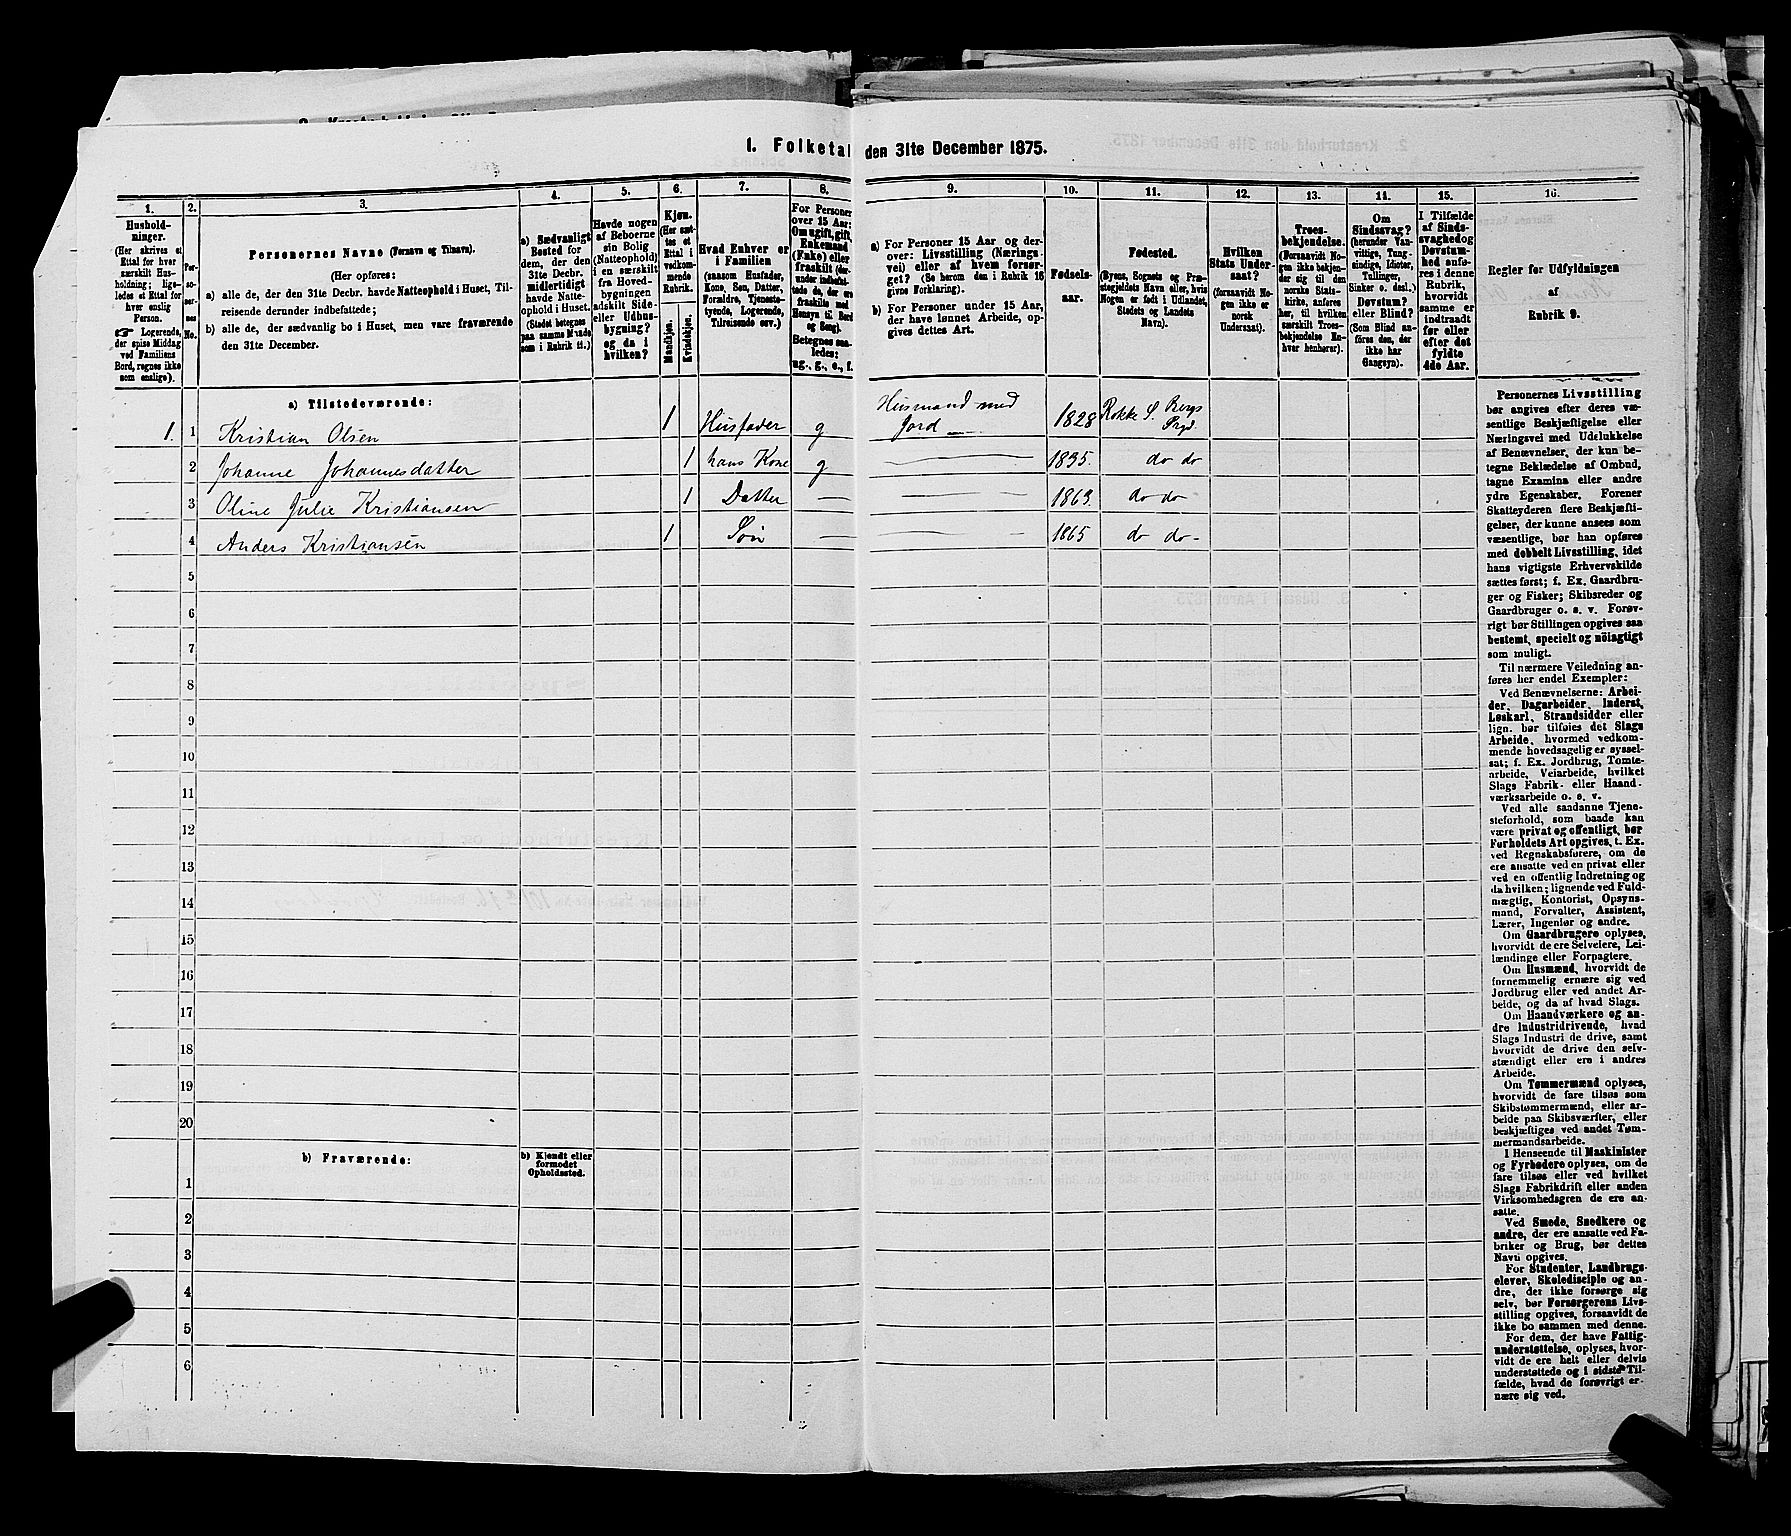 1. Folketal den 31te December 1875.
1.
2.
3.
4.
5.
6.
7.
8.
9.
10.
11.
12.
13.
14.
15.
16.
Hushold-
ninger.
(Her skrives et
Ettal for hver
særskilt Hus-
holdning; lige-
ledes et Ettal for
hver enslig
Person.
☞ Logerende,
der spise Middag
ved Familiens
Bord, regnes ikke
som enslige).
Per-
so-
ner-
nes
No.
Personernes Navne (Fornavn og Tilnavn).
(Her opføres:
a) alle de, der den 31te Decbr. havde Natteophold i Huset, Til-
reisende derunder indbefattede;
b) alle de, der sædvanlig bo i Huset, men vare fraværende
den 31te December.
a) Sædvanligt
Bosted for
dem, der den
31te Decbr.
midlertidigt
havde Natte-
ophold i Huset.
(Stedet betegnes
paa samme Maade
som i Rubrik 11.)
Havde nogen
af Beboerne
sin Bolig
(Natteophold)
i en særskilt
fra Hoved-
bygningen
adskilt Side-
eller Udhus-
bygning?
og da i
hvilken?
Kjøn.
(Her sæt-
tes et
Ettal i
vedkom-
mende
Rubrik.
Mandkjøn.
Kvindekjøn.
Hvad Enhver er
i Familien
(saasom Husfader,
Kone, Søn, Datter,
Forældre, Tjeneste-
tyende, Logerende,
Tilreisende osv.)
For Personer
over 15 Aar:
Om ugift, gift,
Enkemand
(Enke) eller
fraskilt (der-
under indbefat-
tede de, der ere
fraskilte med
Hensyn til Bord
og Seng).
Betegnes saa-
ledes:
ug., g., e., f.
a) For Personer 15 Aar og der-
over: Livsstilling (Nærings-
vei) eller af hvem forsør-
get? (Se herom den i Rubrik 16
givne Forklaring).
b) For Personer under 15 Aar,
der have lønnet Arbeide, op-
gives dettes Art.
Fødsels-
aar.
Fødested.
(Byens, Sognets og Præ-
stegjeldets Navn eller, hvis
Nogen er født i Udlandet,
Stedets og Landets
Navn).
Hvilken
Stats Under-
saat?
(forsaavidt No-
gen ikke er
norsk
Undersaat).
Troes-
bekjendelse.
(Forsaavidt No-
gen ikke bekjen-
der sig til den
norske Stats-
kirke, anføres
her, til hvilken
særskilt Troes-
bekjendelse En-
hver henhører).
Om
Sindssvag?
(herunder Van-
vittige, Tung-
sindige, Idioter,
Tullinger,
Sinker o. desl.)
Døvstum?
eller Blind?
(Som Blind an-
føres den, der
ikke har
Gangsyn).
I Tilfælde
af Sinds-
svaghed og
Døvstum-
hed anfø-
res i denne
Rubrik,
hvorvidt
samme er
indtraadt
før eller
efter det
fyldte
4de Aar.
Regler for Udfyldningen
af
Rubrik 9.
a) Tilstedeværende:
1. 1 Kristian Olsen 1 Husfader g Husmand med Jord 1828 Rokke S. Bergs Prgd.
2 Johanne Johannesdatter 1 hans Kone g 1835. do do
3 Oline Julie Kristiansen 1 Datter — 1863. do do
4 Anders Kristiansen 1 Søn — 1865 do do-
5
6
7
8
9
10
11
12
13
14
15
16
17
18
19
20
b) Fraværende:
b) Kjendt eller
formodet
Opholdssted.
1
2
3
4
5
6
Personernes Livsstilling
bør angives efter deres væ-
sentlige Beskjæftigelse eller
Næringsvei med Udelukkelse
af Benævnelser, der kun be-
tegne Beklædelse af Ombud,
tagne Examina eller andre
ydre Egenskaber. Forener
Skatteyderen flere Beskjæfti-
gelser, der kunne ansees som
væsentlige, bør han opføres
med dobbelt Livsstilling, idet
hans vigtigste Erhvervskilde
sættes først; f. Ex. Gaardbru-
ger og Fisker; Skibsreder og
Gaardbruger o. s. v. Forøv-
rigt bør Stillingen opgives saa
bestemt, specielt og nöiagtigt
som muligt.
Til nærmere Veiledning an-
føres her endel Exempler:
Ved Benævnelserne: Arbei-
der, Dagarbeider, Inderst,
Løskarl, Strandsidder eller
lign. bør tilføies det Slags
Arbeide, hvormed vedkom-
mende hovedsagelig er syssel-
sat; f. Ex. Jordbrug, Tomte-
arbeide, Veiarbeide, hvilket
Slags Fabrik- eller Haand-
værksarbeide o. s. v.
Ved alle saadanne Tjene-
steforhold, som baade kan
være privat og offentligt, bør
Forholdets Art opgives, t. Ex.
ved Regnskabsførere, om de
ere ansatte ved en privat eller
ved en offentlig Indretning og
da hvilken; lignende ved Fuld-
mægtig, Kontorist, Opsyns-
mand, Forvalter, Assistent,
Lærer, Ingeniør og andre.
Om Gaardbrugere oplyses,
hvorvidt de ere Selveiere, Lei-
lændinge eller Forpagtere.
Om Husmænd, hvorvidt de
fornemmelig ernære sig ved
Jordbrug eller ved andet Ar-
beide, og da af hvad Slags.
Om Haandværkere og an-
dre Industridrivende, hvad
Slags Industri de drive, samt
hvorvidt de drive den selv-
stændigt eller ere i andres
Arbeide.
Om Tømmermænd oplyses,
hvorvidt de fare tilsøs som
Skibstømmermænd, eller ar-
beide paa Skibsværfter, eller
beskjæftiges ved andet Tøm-
mermandsarbeide.
I Henseende til Maskinister
og Fyrbødere oplyses, om de
fare tilsøs eller ved hvilket
Slags Fabrikdrift eller anden
Virksomhedsgren de ere an-
satte.
Ved Smede, Snedkere og
andre, der ere ansatte ved Fa-
briker og Brug, bør dettes
Navn opgives.
For Studenter, Landbrugs-
elever, Skoledisciple og an-
dre, der ikke forsørge sig
selv, bør Forsørgerens Livs-
stilling opgives, forsaavidt de
ikke bo sammen med denne.
For dem, der have Fattig-
understøttelse, oplyses, hvor-
vidt de ere helt eller delvis
understøttede og i sidste Til-
fælde, hvad de forøvrigt er-
nære sig ved.